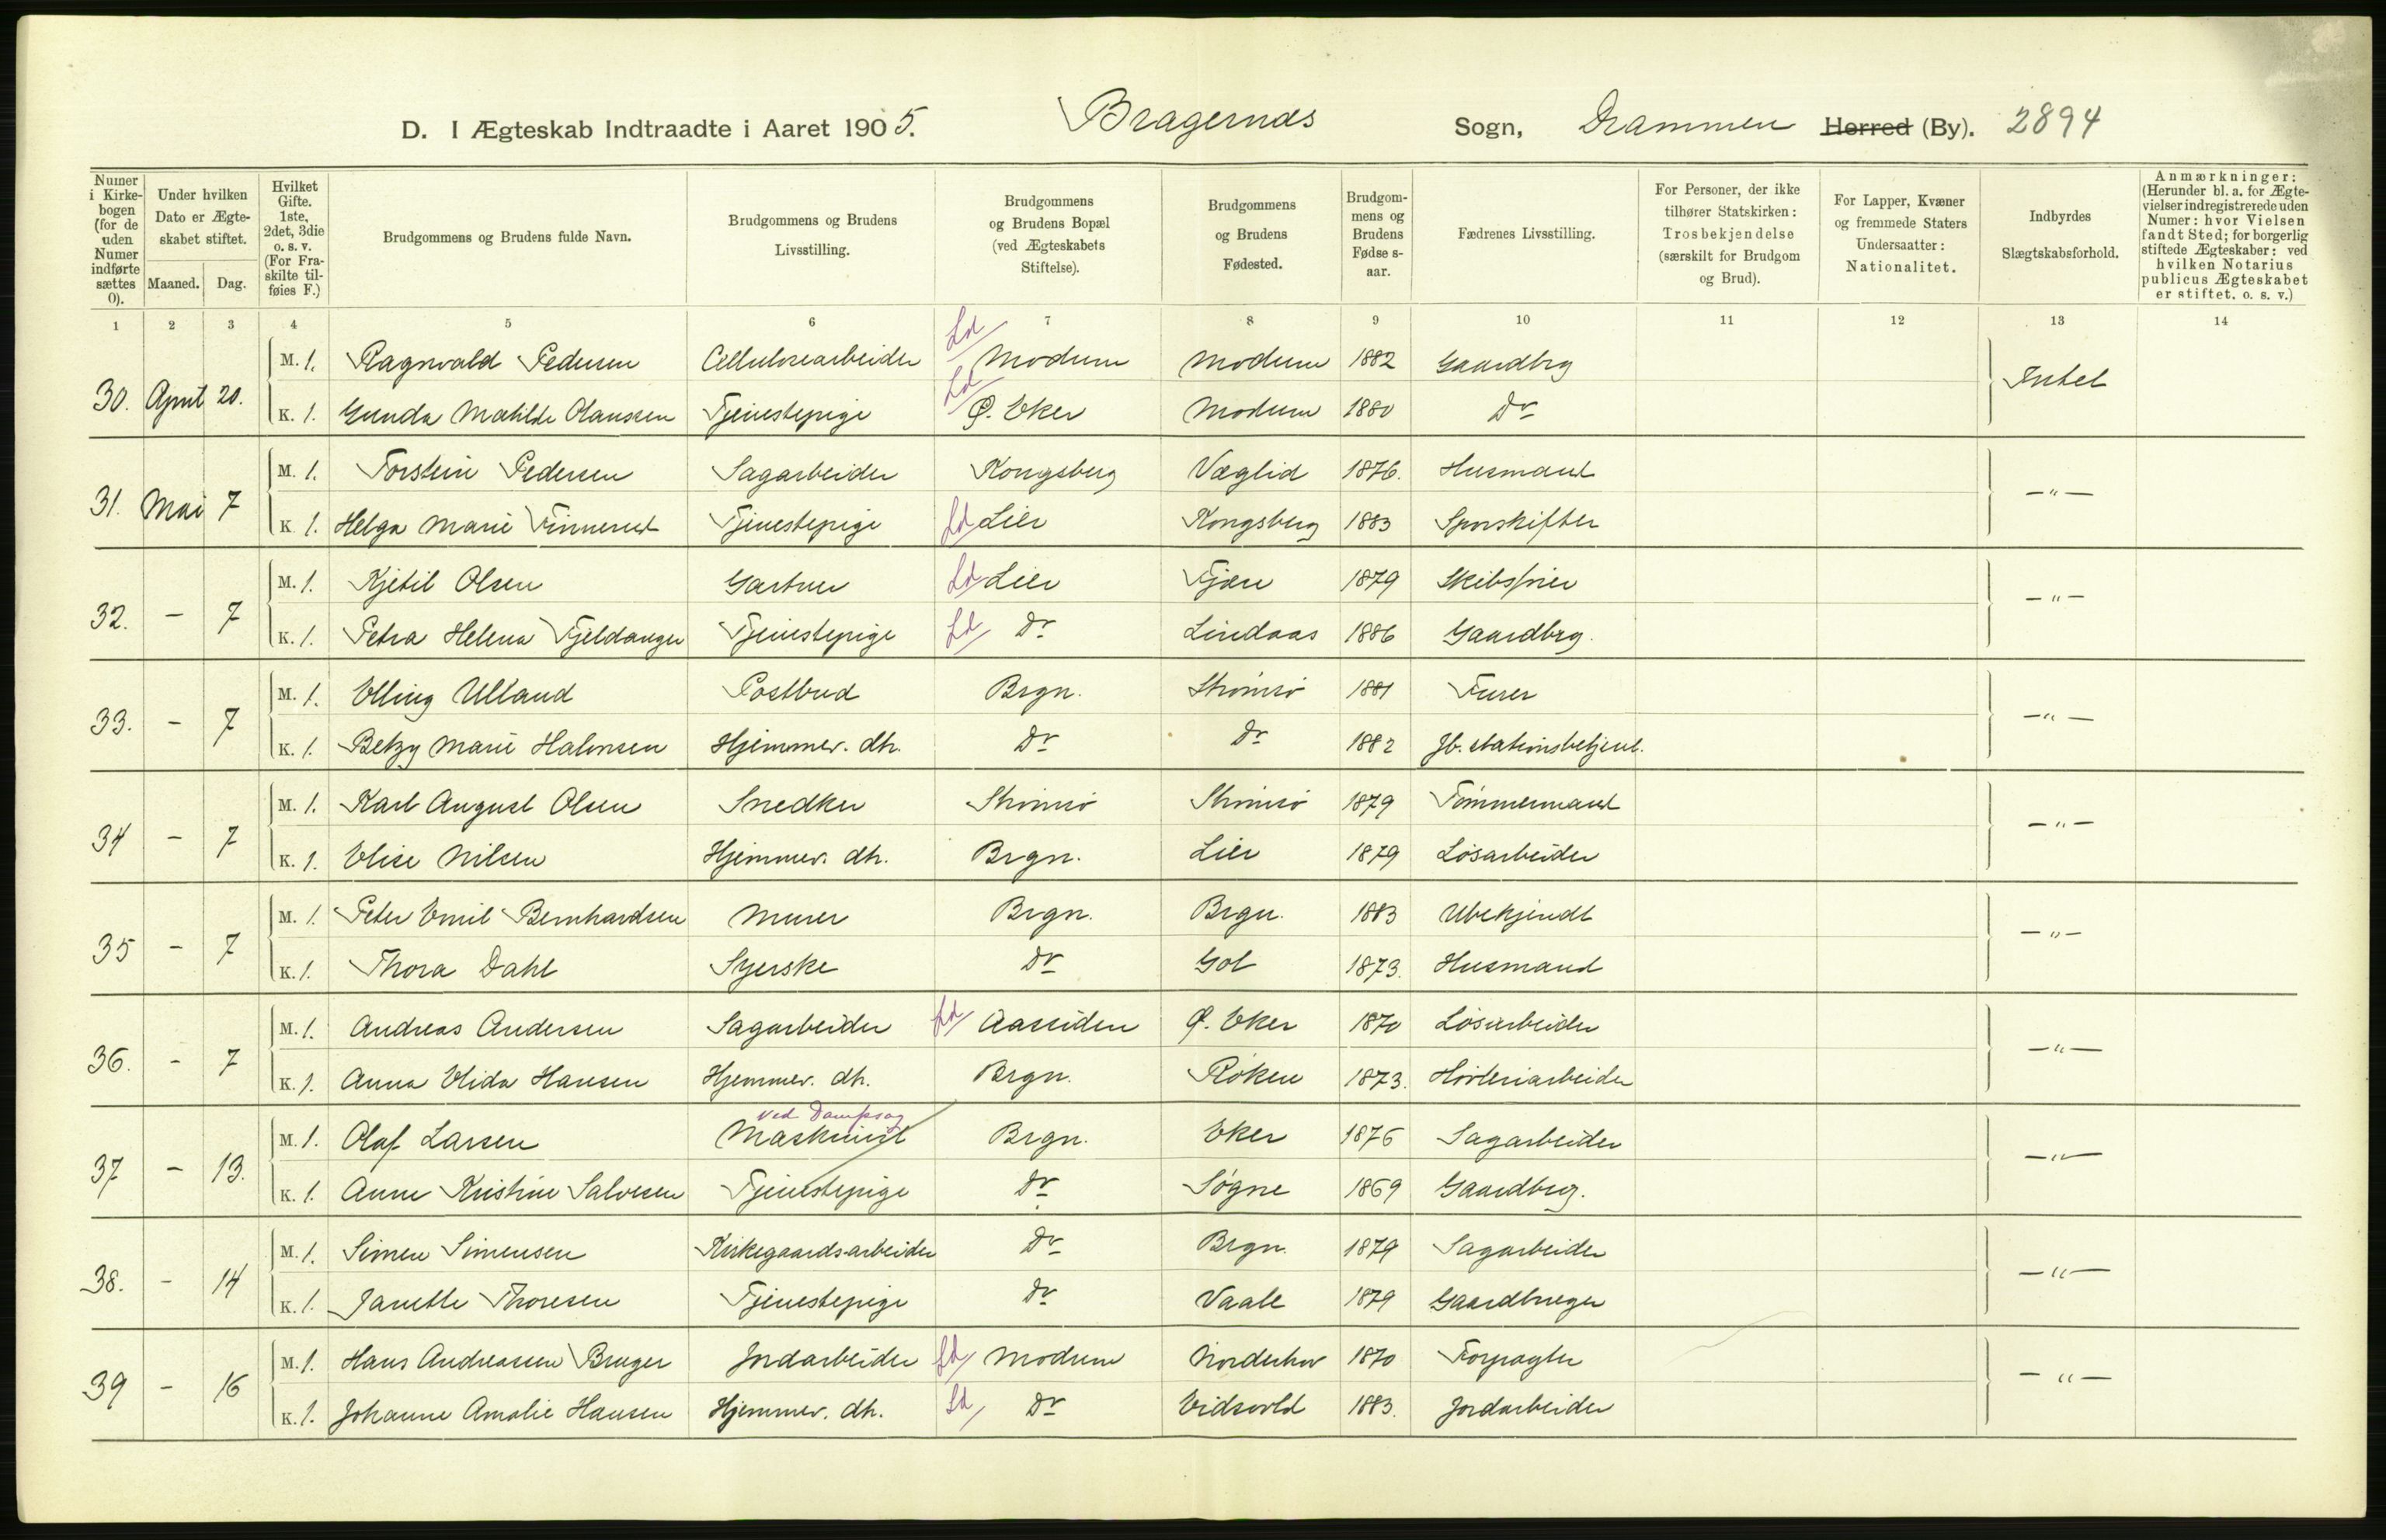 D. I Ægteskab Indtraadte i Aaret 1905. Bragernæs Sogn, Drammen Herred (By). 2894
Numer i Kirkebogen (for de uden Numer indførte sættes 0).
Under hvilken Dato er Ægteskabet stiftet.
Maaned. Dag.
Hvilket Gifte. 1ste, 2det, 3die o. s. v. (For Fraskilte tilføies F.)
Brudgommens og Brudens fulde Navn.
Brudgommens og Brudens Livsstilling.
Brudgommens og Brudens Bopæl (ved Ægteskabets Stiftelse).
Brudgommens og Brudens Fødested.
Brudgommens og Brudens Fødselsaar.
Fædrenes Livsstilling.
For Personer, der ikke tilhører Statskirken: Trosbekjendelse (særskilt for Brudgom og Brud).
For Lapper, Kvæner og fremmede Staters Undersaatter: Nationalitet.
Indbyrdes Slægtskabsforhold.
Anmærkninger: (Herunder bl. a. for Ægtevielser indregistrerede uden Numer: hvor Vielsen fandt Sted; for borgerlig stiftede Ægteskaber: ved hvilken Notarius publicus Ægteskabet er stiftet. o. s. v.)
1 2 3 4 5 6 7 8 9 10 11 12 13 14
30. April 20. M. 1. Ragnvald Pedersen Cellulosearbeider Ld Modum Modum 1882 Gaardbrg Intet
K. 1. Gunda Mathilde Olaussen Tjenestepige Ld Ø. Eker Modum 1880 Do
31. Mai 7 M. 1. Torstein Pedersen Sagarbeider Kongsberg Væglid 1876. Husmand — " —
K. 1. Helga Marie Finnerud Tjenestepige Ld Lier Kongsberg 1883 Sporskifter
32. - 7 M. 1. Kjetil Olsen Gartner Ld Lier Fjære 1879 — " —
K. 1. Petra Helena Fjeldanger Tjenestepige Ld Do Lindaas 1886 Gaardbrg.
33. - 7 M. 1. Elling Ulland Postbud Brgn. Strømsø 1881 Furer — " —
K. 1. Betzy Marie Halvorsen Hjemmev. dtr. Do Do 1882 Jb. stationsbetjent.
34 - 7 M. 1. Karl August Olsen Snedker Strømsø Strømsø 1879 Tømmermand — " —
K. 1. Elise Nilsen Hjemmev. dtr. Brgn. Lier 1879 Løsarbeider
35 - 7 M. 1. Peter Emil Bernhardsen Murer Brgn. Brgn. 1883 Ubekjendt — " —
K. 1. Thora Dahl Syerske Do Gol 1873. Husmand
36. - 7 M. 1. Andreas Andersen Sagarbeider Ld Aassiden Ø. Eker 1870 Løsarbeider — " —
K. 1. Anna Elida Hansen Hjemmev. dtr. Brgn. Røken 1873. Høvleriarbeider
ved Dampsag
37 - 13. M. 1. Olaf Larsen Maskinist Brgn. Eker 1876 Sagarbeider — " —
K. 1. Anne Kristine Salvesen Tjenestepige Do Søgne 1869 Gaardbrg.
38. - 14 M. 1. Simen Simensen Kirkegaards-arbeider Do Brgn. 1879 Sagarbeider — " —
K. 1. Janette Thoresen Tjenestepige Do Vaale 1879 Gaardbruger
39 - 16 M. 1. Hans Andreassen Bruger Jordarbeider Ld Modum Norderhov 1870 Forpagter — " —
K. 1. Johanne Amalie Hansen Hjemmev. dtr. Ld Do Eidsvold 1883. Jordarbeider